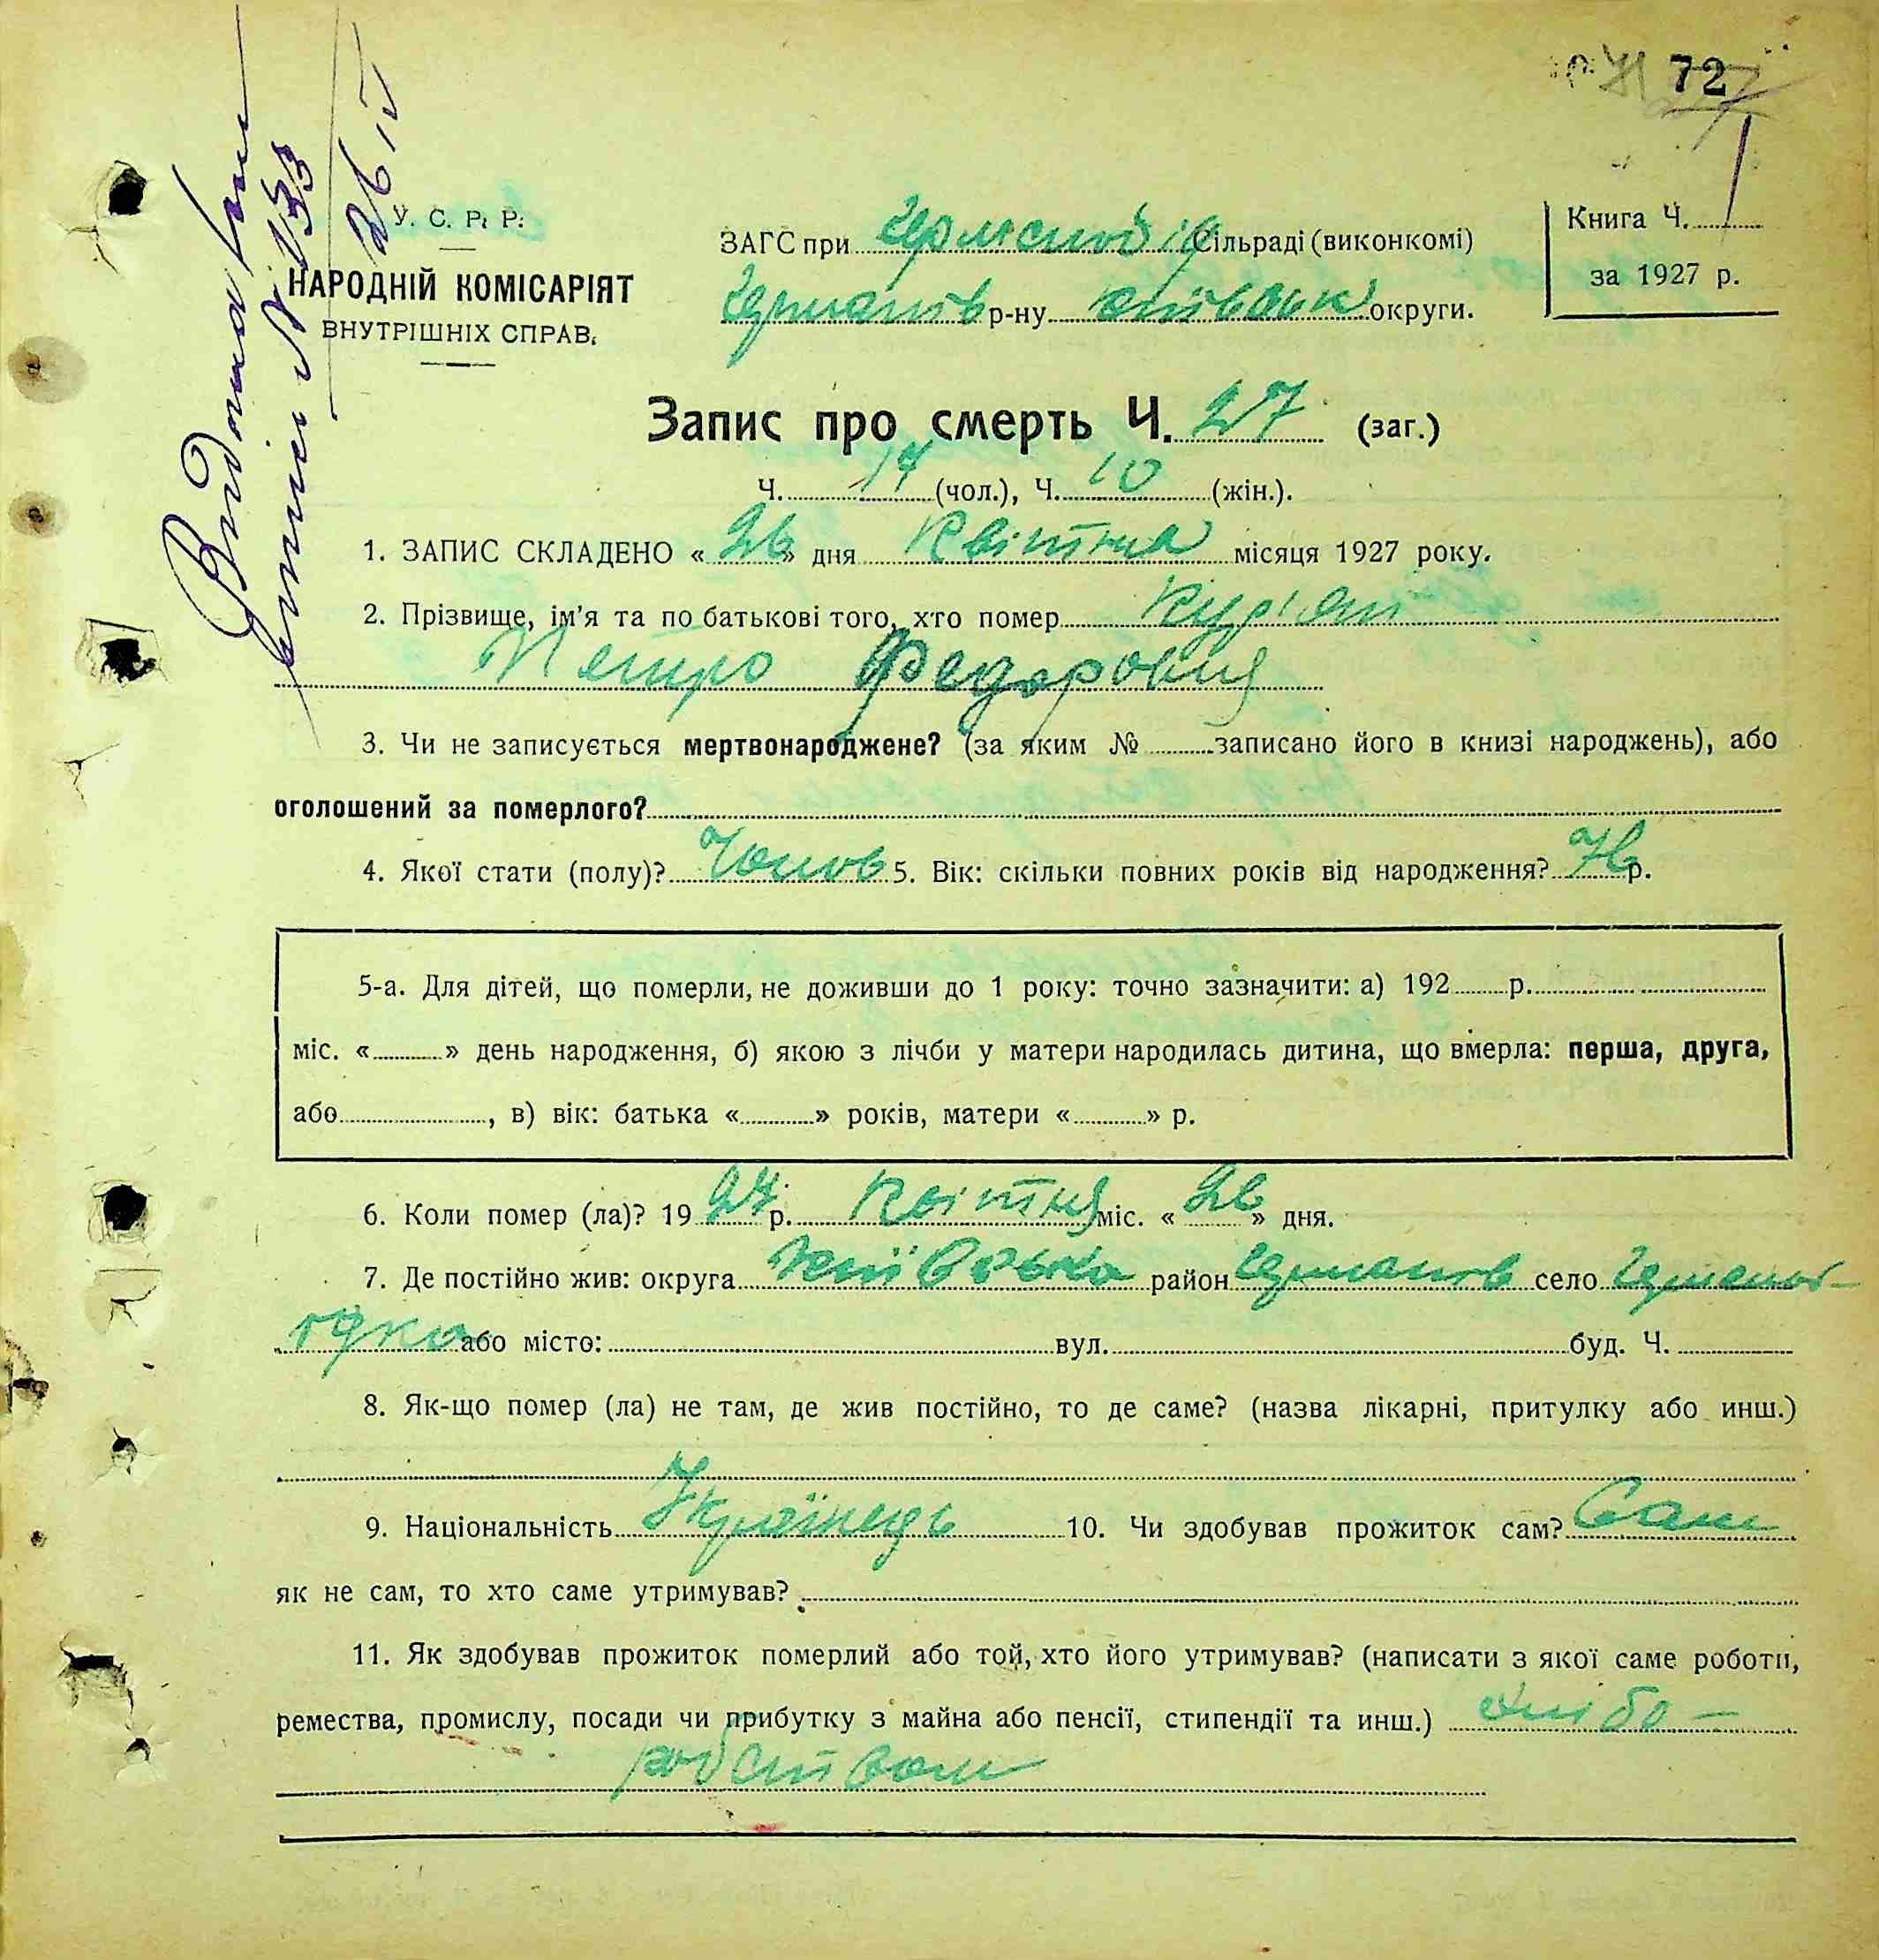 72
Видана вип
26 IV
У. С. Р. Р.
НАРОДНІЙ КОМІСАРІЯТ
ВНУТРІШНІХ СПРАВ.
ЗАГС при Сільраді (виконкомі)
р-ну округи.
Книга Ч. 1
за 1927 р.
Запис про смерть Ч. 27 (заг.)
Ч. 17 (чол.), Ч. 10 (жін.).
1. ЗАПИС СКЛАДЕНО « 26 » дня Квітня місяця 1927 року.
2. Прізвище, ім'я та по батькові того, хто помер
Петро Федорович
3. Чи не записується мертвонароджене? (за яким № записано його в книзі народжень), або
оголошений за померлого?
4. Якої стати (полу)? Чолов 5. Вік: скільки повних років від народження? 76 р.
5-а. Для дітей, що померли, не доживши до 1 року: точно зазначити: а) 192 р.
міс. « » день народження, б) якою з лічби у матери народилась дитина, що вмерла: перша, друга,
або , в) вік: батька « » років, матери « » р.
6. Коли помер (ла)? 19 27 р. Квітня міс. « 26 » дня.
7. Де постійно жив: округа Київська район Германів село Германів-
ка або місто: вул. буд. Ч.
8. Як-що помер (ла) не там, де жив постійно, то де саме? (назва лікарні, притулку або инш.)
9. Національність Українець 10. Чи здобував прожиток сам? Сам
як не сам, то хто саме утримував?
11. Як здобував прожиток померлий або той, хто його утримував? (написати з якої саме роботи,
ремества, промислу, посади чи прибутку з майна або пенсії, стипендії та инш.) хлібо-
робством